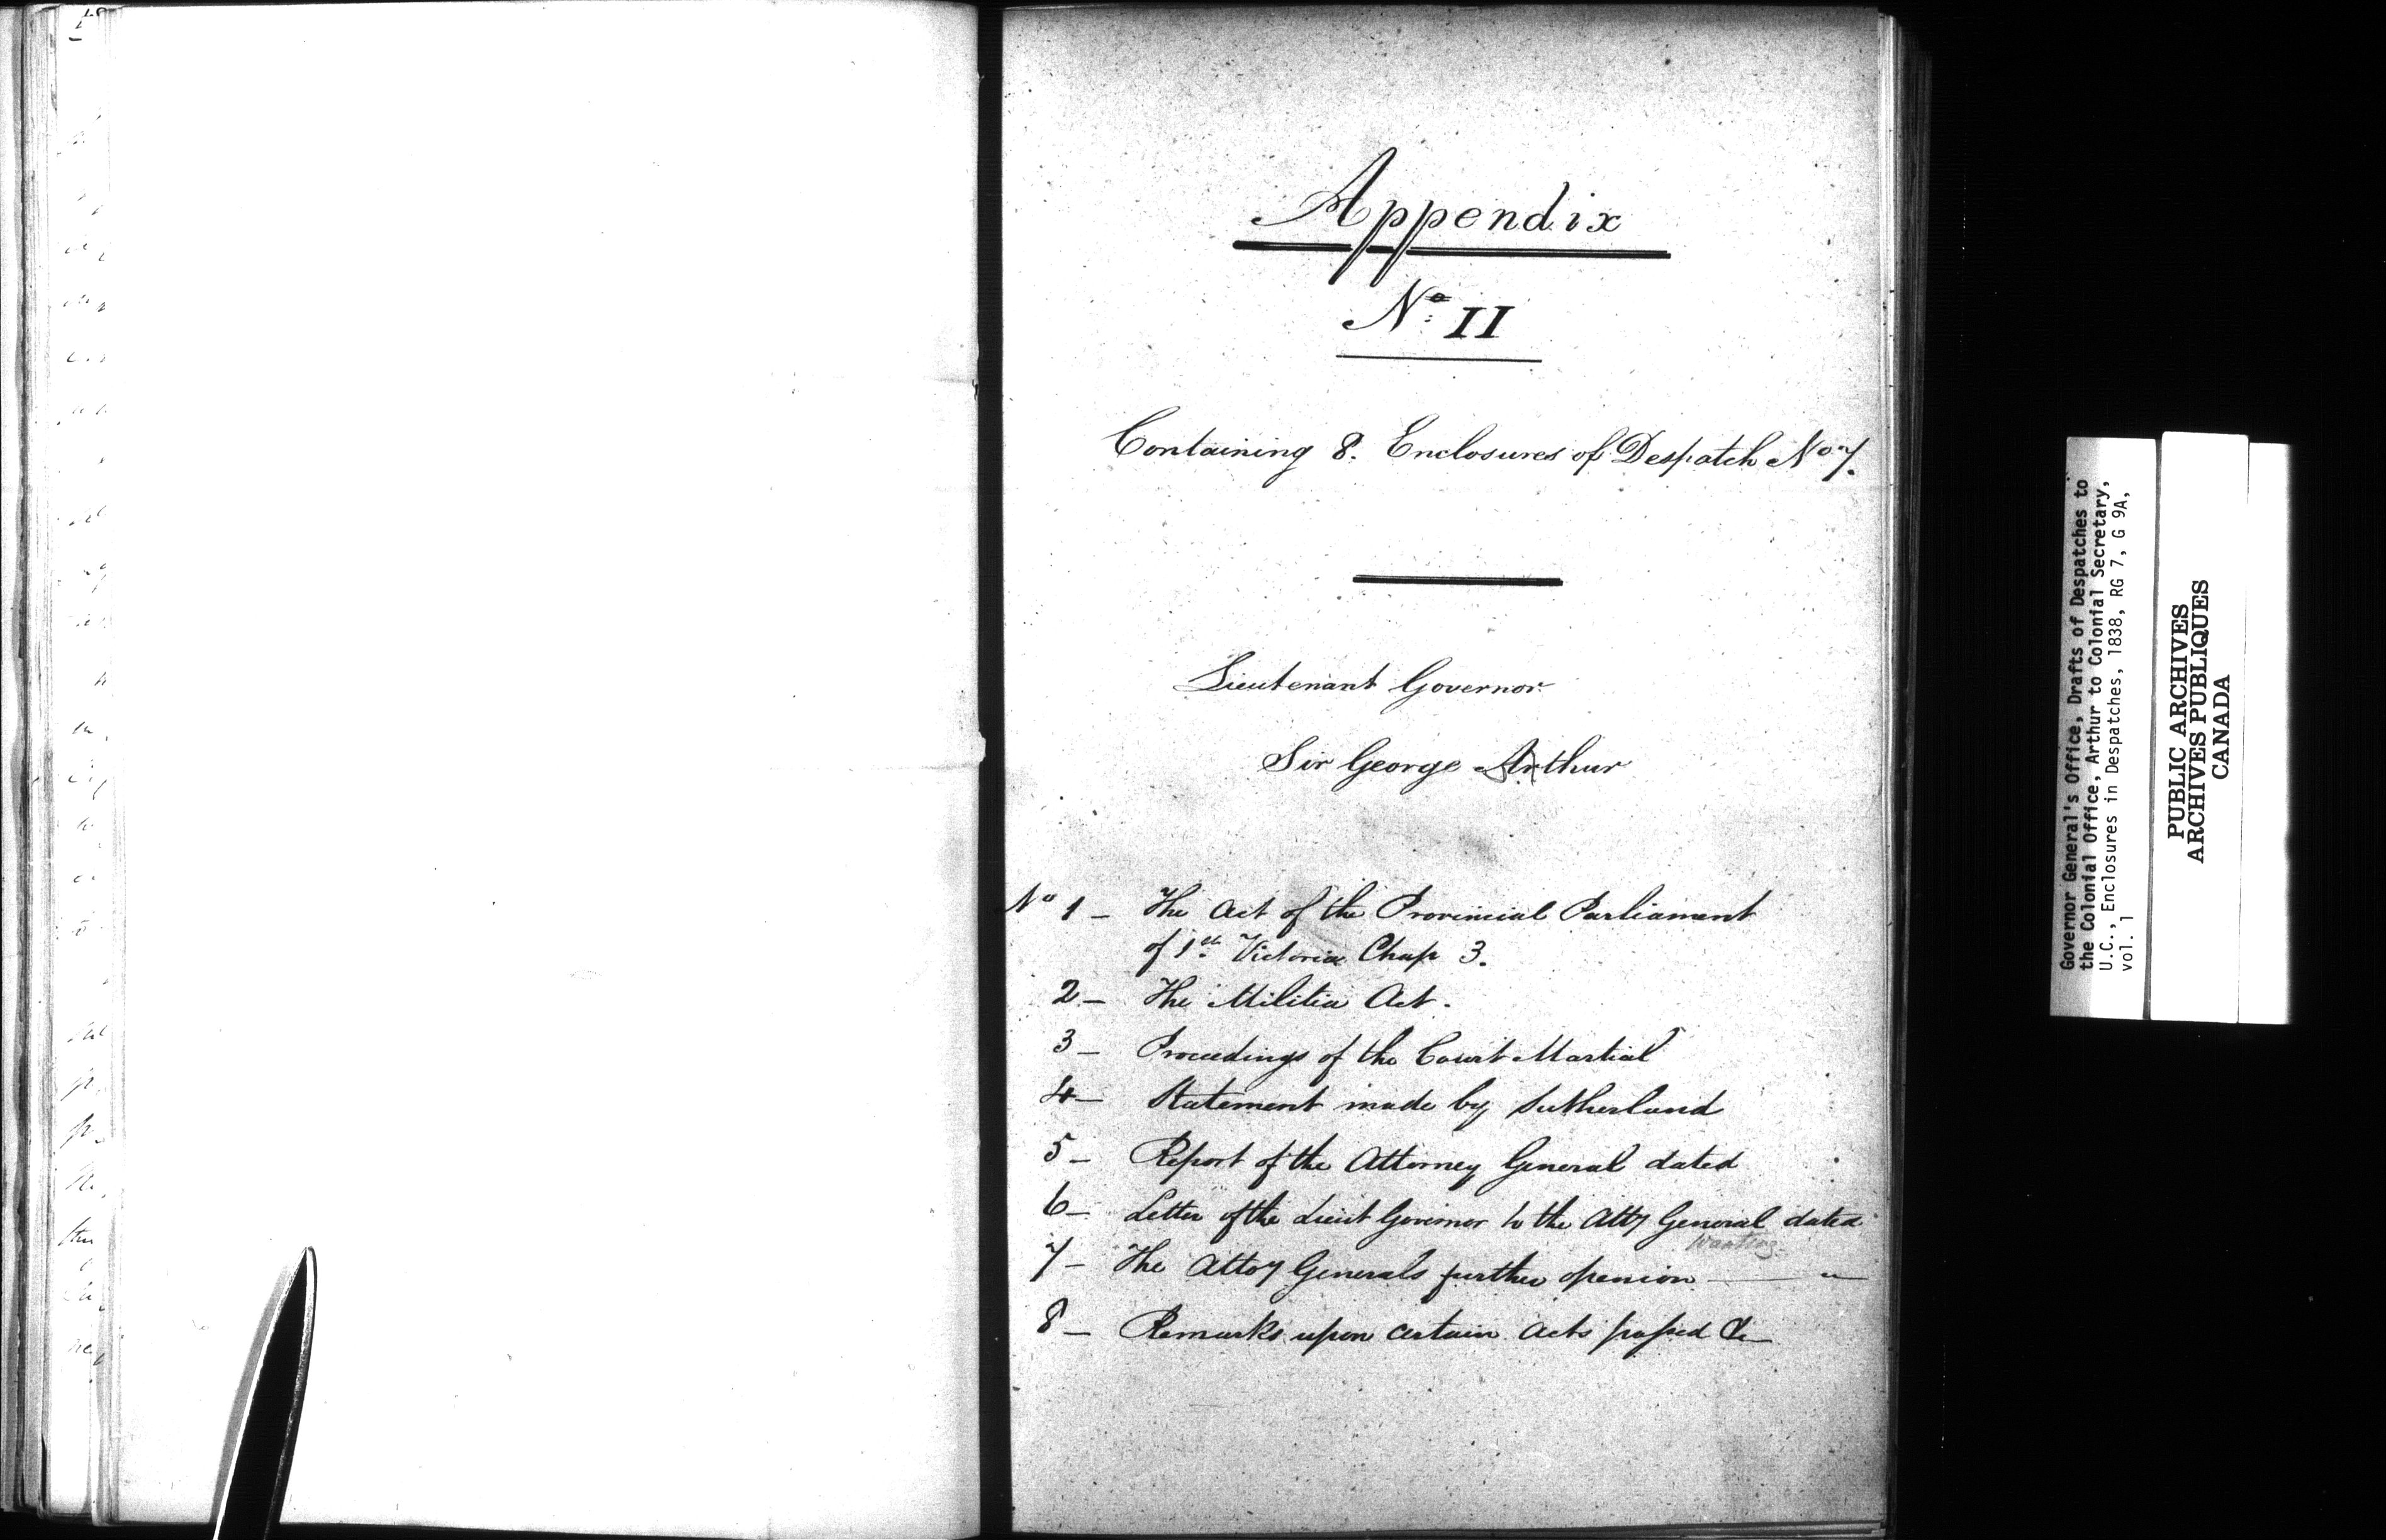 Appendix
No. II
Containing 8. Enclosures of Despatch No 7.
Lieutenant Governor
Sir George Arthur
No 1 – The Act of the Provincial Parliament
of 1st Victoria Chap 3.
2 – The Militia Act.
3 – Proceedings of the Court Martial
4 – Statement made by Sutherland
5 – Report of the Attorney General dated
6 – Letter of the Lieut Governor to the Atty General dated
Wanting
7 – The Attoy Generals further openion — "
8 – Remarks upon certain Acts passed &c
Governor General's Office, Drafts of Despatches to
the Colonial Office, Arthur to Colonial Secretary,
U.C., Enclosures in Despatches, 1838, RG 7, G 9A,
vol. 1
PUBLIC ARCHIVES
ARCHIVES PUBLIQUES
CANADA